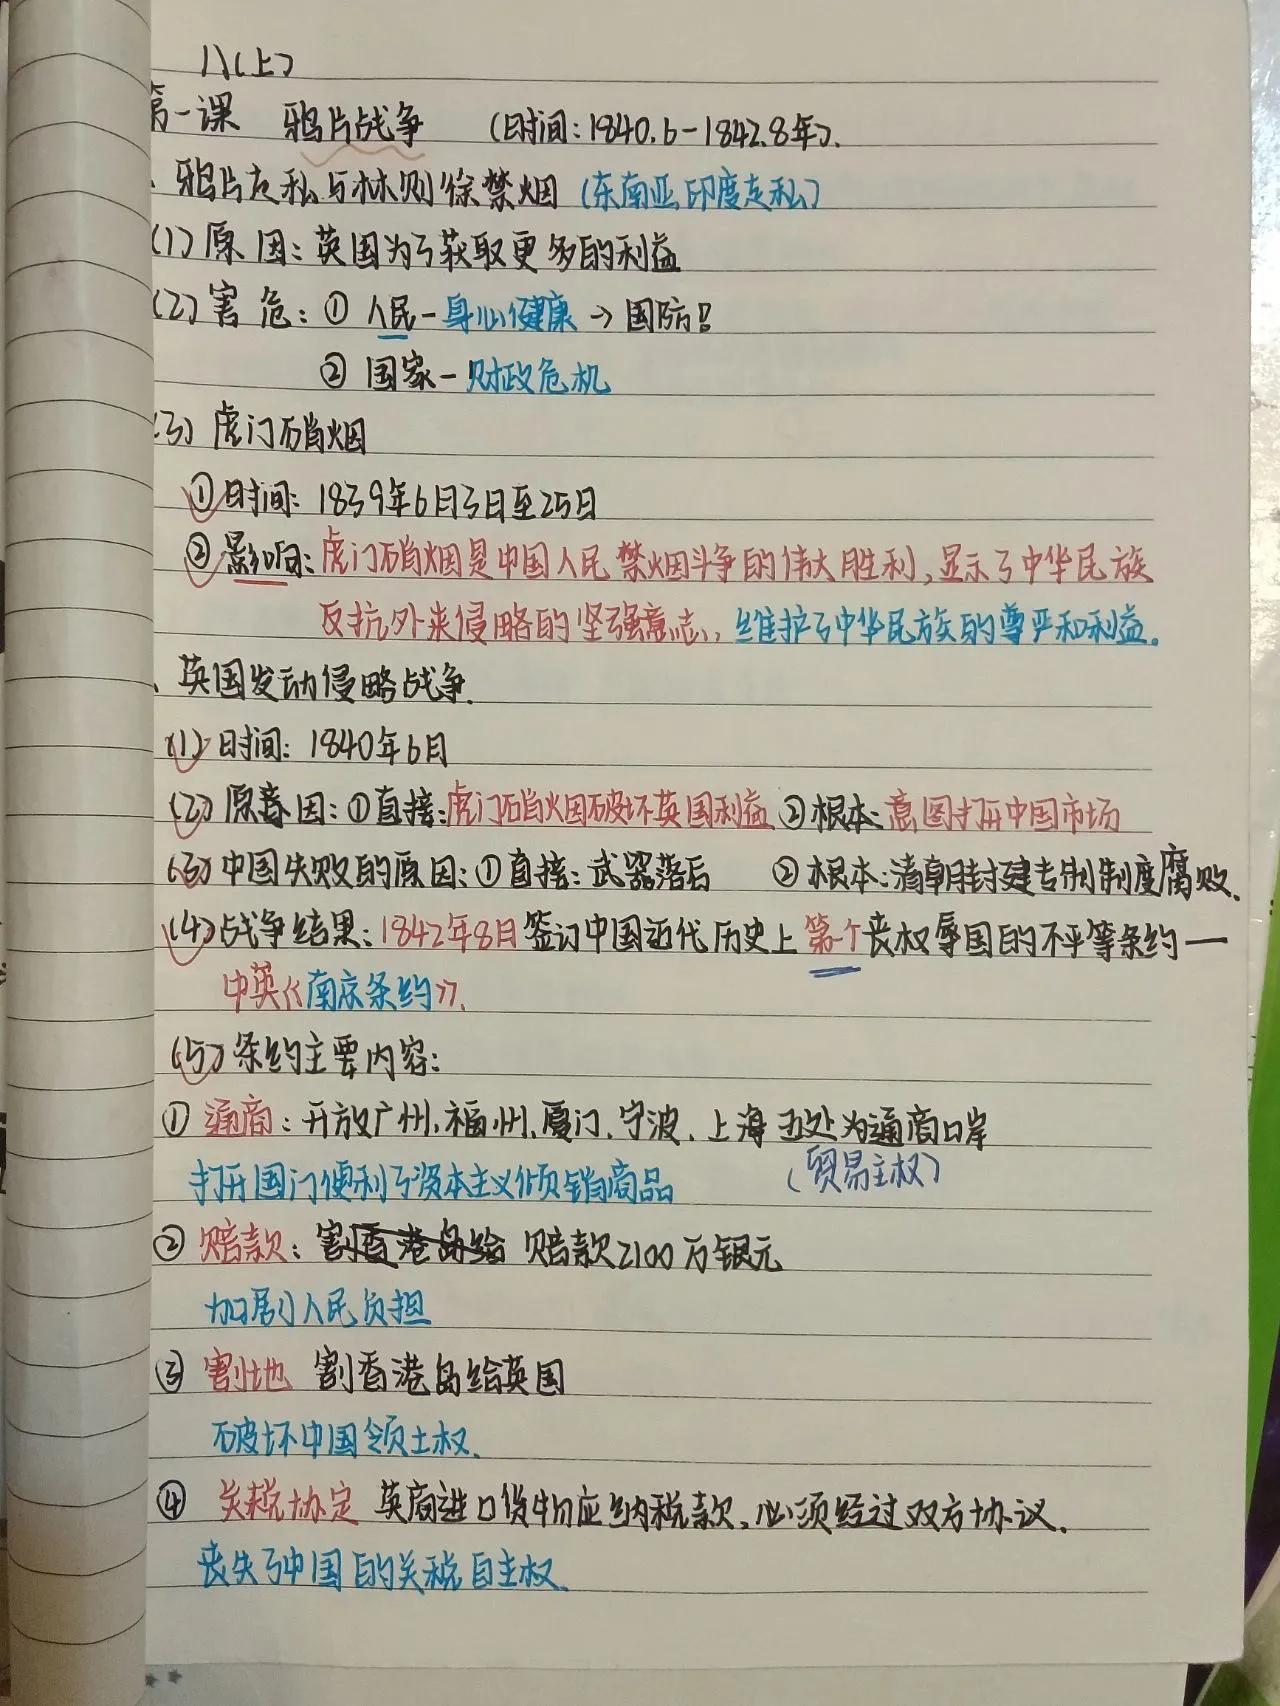 八(上)
第一课 鸦片战争 (时间:1840.6-1842.8年).
、鸦片走私与林则徐禁烟 (东南亚,印度走私)
(1)原因:英国为了获取更多的利益
(2)害危:①人民-身心健康→国防!
②国家-财政危机
(3)虎门硝烟
①时间:1839年6月3日至25日
②影响:虎门硝烟是中国人民禁烟斗争的伟大胜利,显示了中华民族
反抗外来侵略的坚强意志,维护了中华民族的尊严和利益。
、英国发动侵略战争.
(1)时间:1840年6月
(2)原因:①直接:虎门硝烟破坏英国利益 ②根本:意图打开中国市场
(3)中国失败的原因:①直接:武器落后 ②根本:清朝封建专制制度腐败.
(4)战争结果:1842年8月签订中国近代历史上第一个丧权辱国的不平等条约一
中英《南京条约》.
(5)条约主要内容:
①通商:开放广州、福州、厦门、宁波、上海五处为通商口岸
打开国门便利了资本主义倾销商品 (贸易主权)
②赔款:割香港岛给 赔款2100万银元
加剧人民负担
③割地 割香港岛给英国
破坏中国领土权.
④关税协定 英商进口货物应纳税款,必须经过双方协议.
丧失了中国的关税自主权.